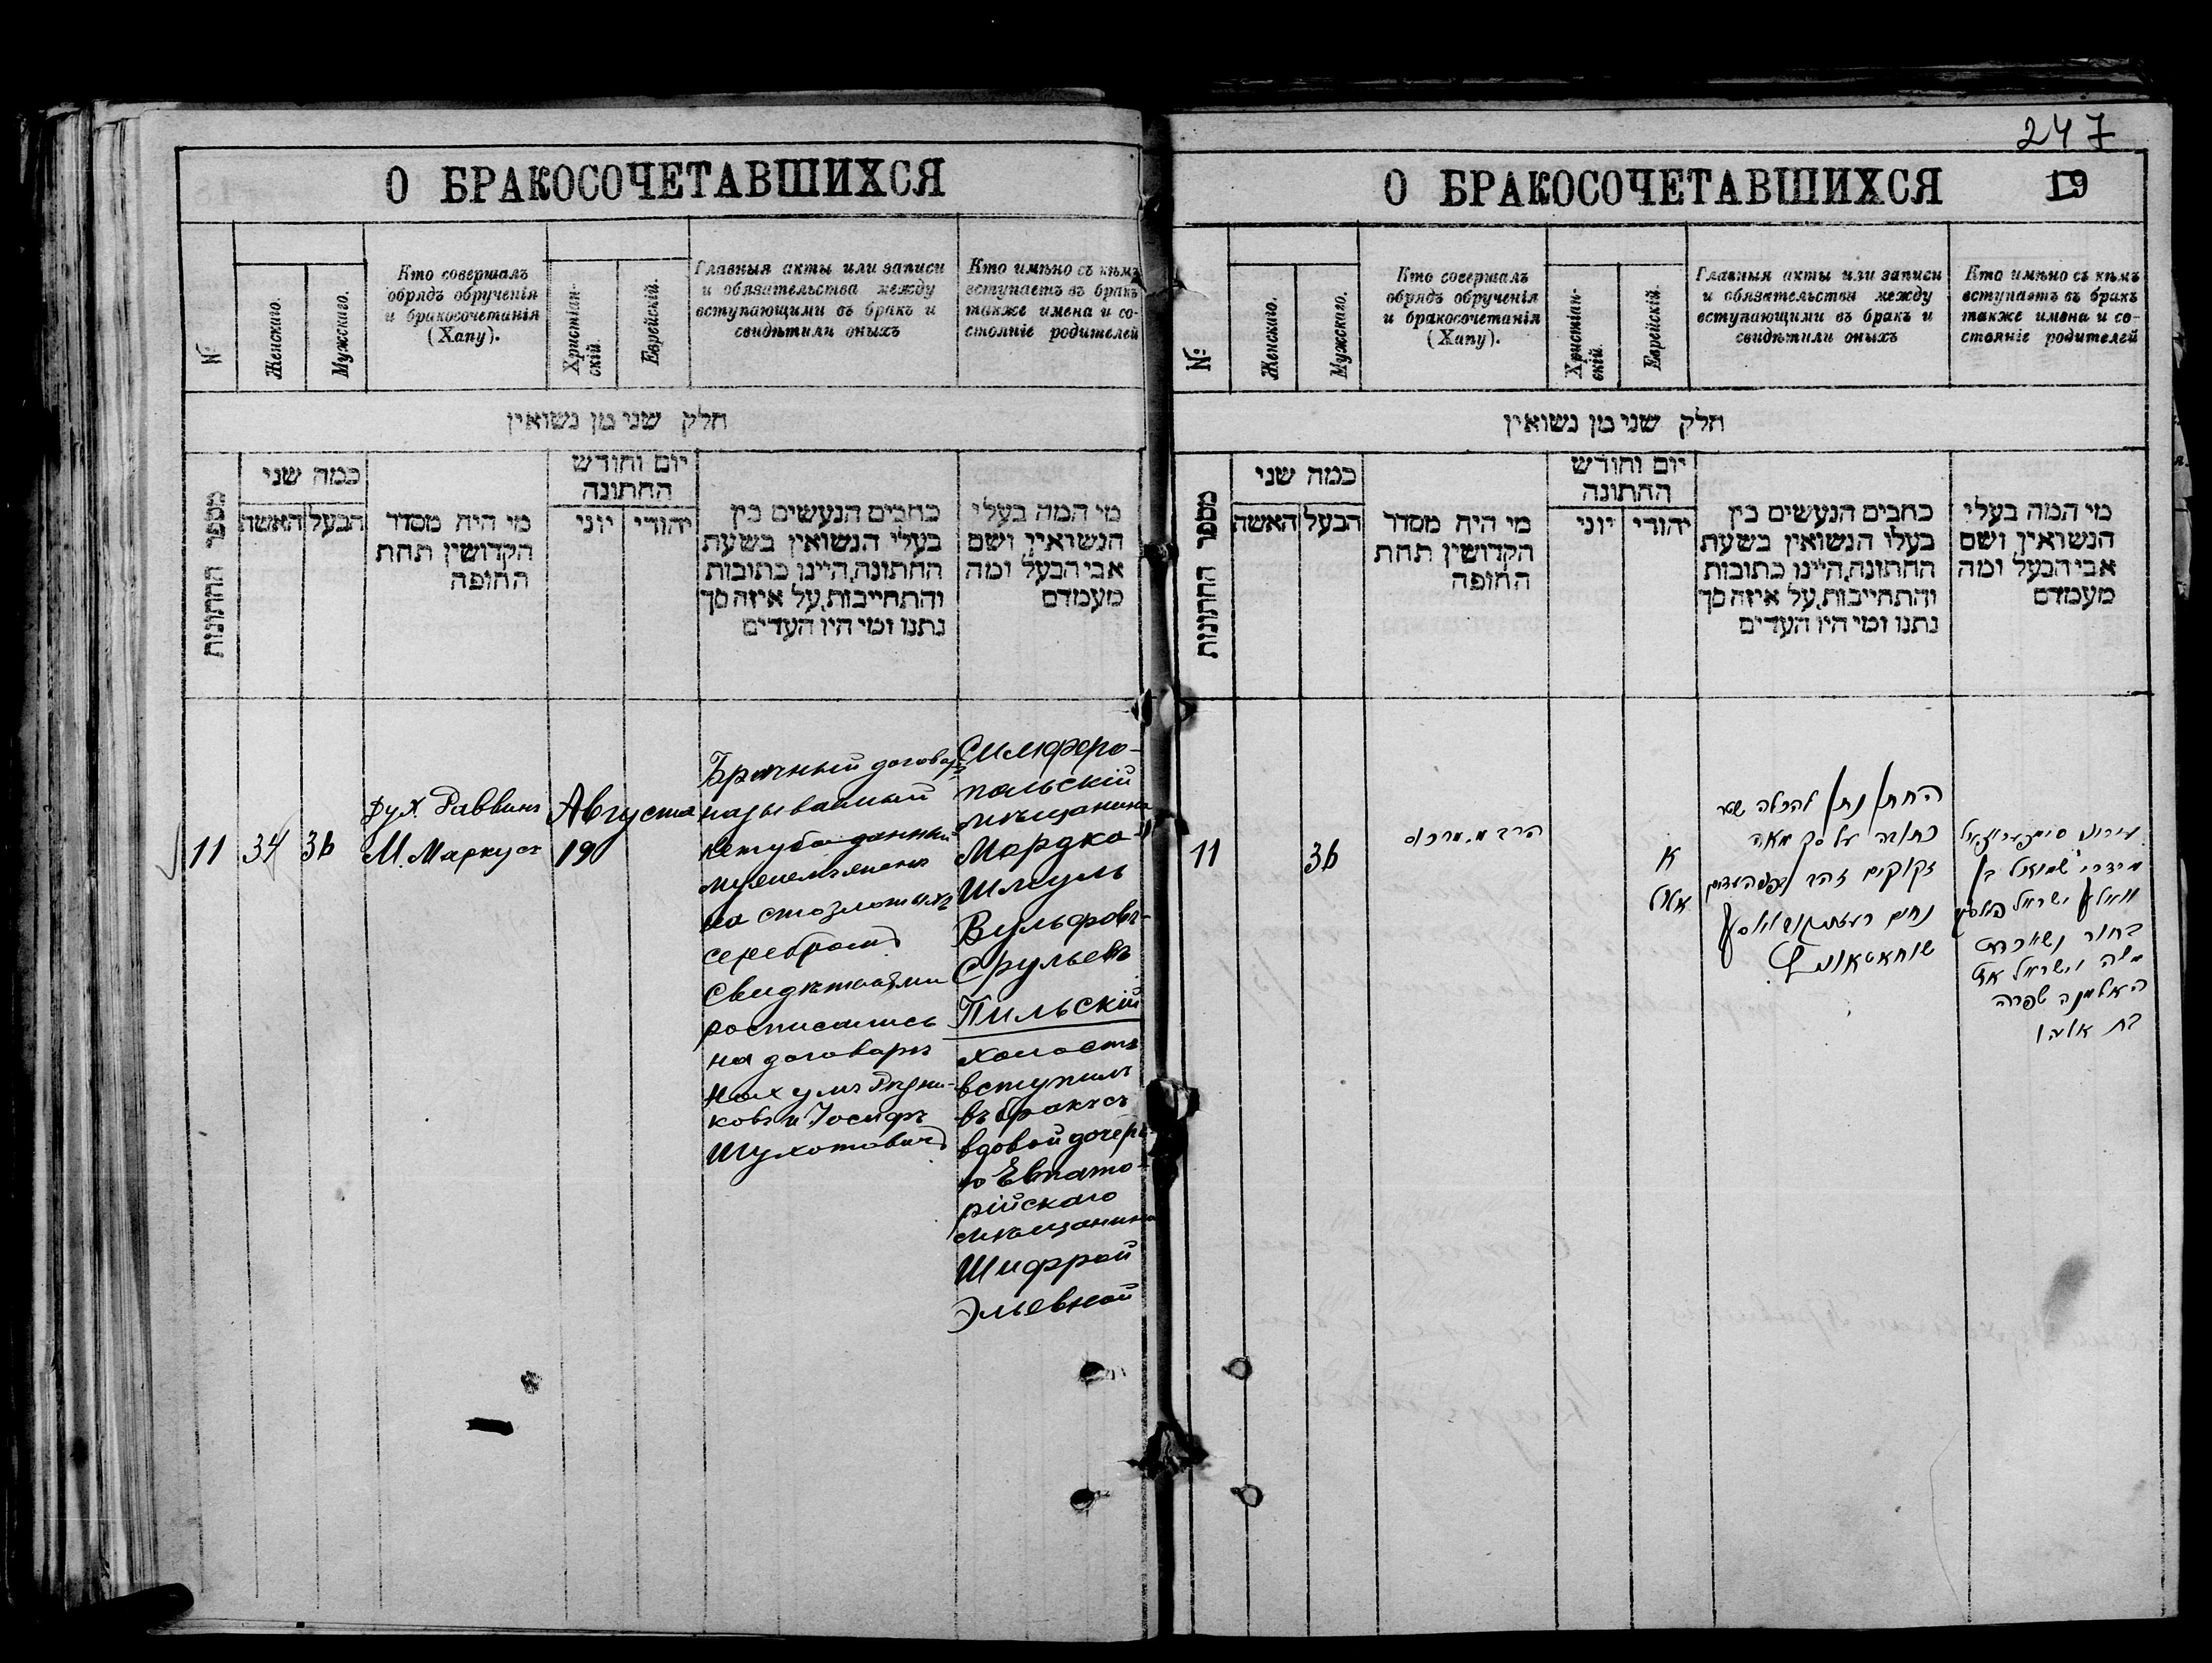 О БРАКОСОЧЕТАВШИХСЯ
№
Женскаго.
Мужскаго.
Кто совершалъ
обрядъ обрученія
и бракосочетанія
(Хапу).
Христіан-
скій.
Еврейскій.
Главныя акты или записи
и обязательства между
вступающими въ бракъ и
свидѣтили оныхъ
Кто имѣно съ кѣмъ
вступаетъ въ бракъ
также имена и со-
стояніе родителей
חלק שני מן נשואין
מספר החתונות
כמה שני
האשה
הבעל
מי היה מסדר
הקדושין תחת
החופה
יום וחודש
החתונה
יוני
יהודי
כחבים הנעשים בין
בעלי הנשואין בשעת
החתונה, היינו כתובות
והתחייבות, על איזה סך
נתנו ומי היו העדים
מי המה בעלי
הנשואין, ושם
אבי הבעל ומה
מעמדם
11
34
36
Дух. Раввинъ
М. Маркусъ
Августа
19
Брачный договоръ
называемый
кетуба данный
мужемъ женѣ
на сто злотыхъ
серебромъ
Свидѣтелями
росписались
на договорѣ
Нахумъ
ковъ и Іосифъ
Шухатовичъ
Симферо-
польскій
мѣщанинъ
Мордко-
Шмуль
Вульфовъ-
Срульевъ
Пильскій
холостъ
вступилъ
въ бракъ съ
вдовой дочерь-
ю Евпато-
рійскаго
мѣщанина
Шифрой
Эльевной
247
О БРАКОСОЧЕТАВШИХСЯ
19
№
Женскаго.
Мужскаго.
Кто совершалъ
обрядъ обрученія
и бракосочетанія
(Хапу).
Христіан-
скій.
Еврейскій.
Главныя акты или записи
и обязательства между
вступающими въ бракъ и
свидѣтили оныхъ
Кто имѣно съ кѣмъ
вступаетъ въ бракъ
также имена и со-
стояніе родителей
חלק שני מן נשואין
מספר החתונות
כמה שני
האשה
הבעל
מי היה מסדר
הקדושין תחת
החופה
יום וחודש
החתונה
יוני
יהודי
כחבים הנעשים בין
בעלי הנשואין בשעת
החתונה, היינו כתובות
והתחייבות, על איזה סך
נתנו ומי היו העדים
מי המה בעלי
הנשואין, ושם
אבי הבעל ומה
מעמדם
11
36
הרב מ. מרכוס
א
אלול
החתן נתן להכלה שטר
כתובה על סך מאה
זקוקים זהב
נחום
מרדכי שמואל בן
וואלף ישראל
בחור נשא
משה וישראל את
האלמנה שפרה
בת